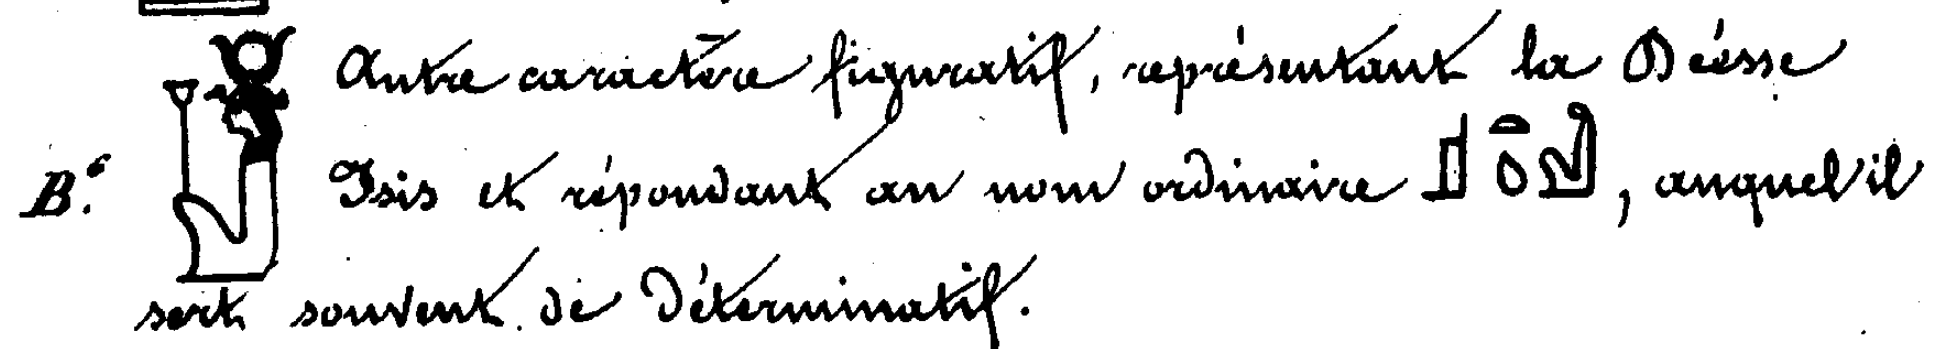 Autre caractère figuratif, représentant la Déesse
B.e Isis et répondant au nom ordinaire 𓊨𓏏𓆇𓁐, auquel il
sert souvent de Déterminatif.